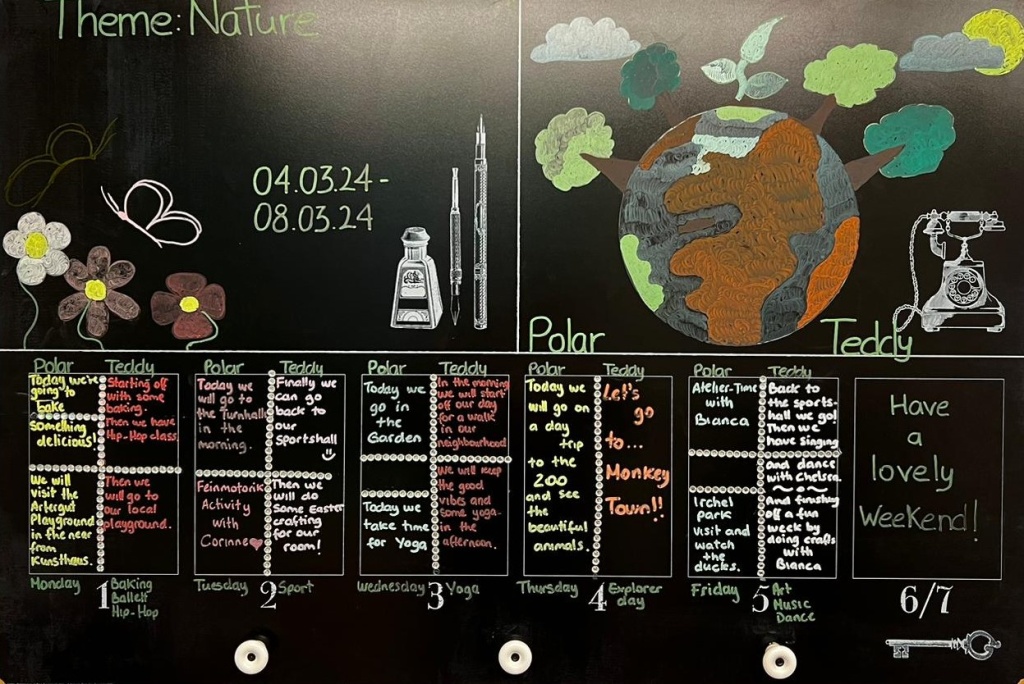 Theme: Nature
04.03.24 -
08.03.24
Polar
Teddy
Polar
Teddy
Today we're
going to
bake
something
delicious!
We will
visit the
Artergut
Playground
in the near
from
Kunsthaus.
Starting off
with some
baking.
Then we have
Hip-Hop class.
Then we
will go to
our local
playground.
Monday
1
Baking
Ballett
Hip-Hop
Polar
Teddy
Today we
will go to
the Turnhalle
in the
morning.
Feinmotorik
Activity
with
Corinne
Finally we
can go
back to
our
Sportshall
Then we
will do
Some Easter
crafting
for our
room!
Tuesday
2
Sport
Polar
Teddy
Today we
go in
the
Garden
Today we
take time
for Yoga
In the morning
we will start
off our day
for a walk
in our
neighbourhood
We will keep
the good
vibes and
some yoga
in the
afternoon.
Wednesday
3
Yoga
Polar
Teddy
Today we
will go on
a day
trip
to the
ZOO
and see
the
beautiful
animals.
Let's
go
to...
Monkey
Town!!
Thursday
4
Explorer
day
Polar
Teddy
Atelier-Time
with
Bianca
Irchel
park
visit and
watch
the
ducks.
Back to
the sports-
hall we go!
Then we
have singing
and dance
with Chelsea.
And finishing
off a fun
week by
doing crafts
with
Bianca
Friday
5
Art
Music
Dance
Have
a
lovely
Weekend!
6/7